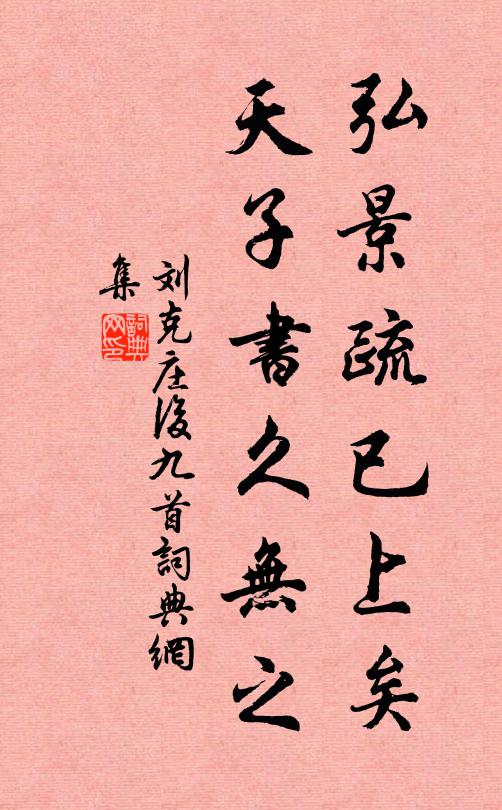 弘景疏已上矣
天子書久無之
刘克庄後九首詞典網
集
詞典
网印